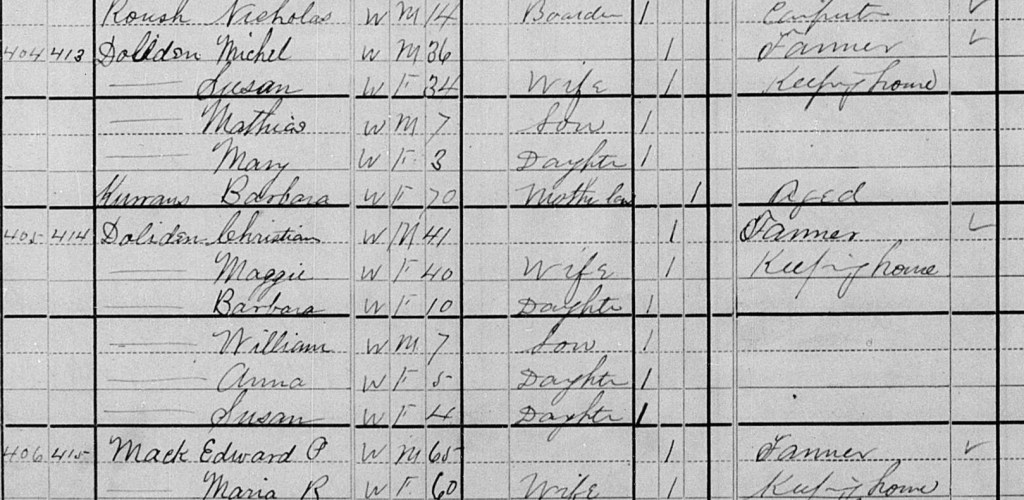 Roush Nicholas W M 14 Boarder 1
404 413 Doliden Michel W M 36 1 Farmer ✓
—— Susan W F 34 Wife 1 Keeping home
—— Mathias W M 7 Son 1
—— Mary W F 3 Daughter 1
Barbara W F 70 Mother law 1 Aged
405 414 Doliden Christian W M 41 1 Farmer ✓
—— Maggie W F 40 Wife 1 Keeping home
—— Barbara W F 10 Daughter 1
—— William W M 7 Son 1
—— Anna W F 5 Daughter 1
—— Susan W F 4 Daughter 1
406 415 Mack Edward P W M 65 1 Farmer ✓
—— Maria R W F 60 Wife 1 Keeping home